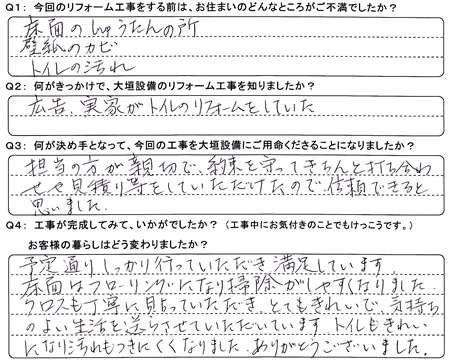 Q1: 今回のリフォーム工事をする前は、お住まいのどんなところがご不満でしたか?
床面のじゅうたんの所
壁紙のカビ
トイレの汚れ
Q2: 何がきっかけで、大垣設備のリフォーム工事を知りましたか?
広告、実家がトイレのリフォームをしていた
Q3: 何が決め手となって、今回の工事を大垣設備にご用命くださることになりましたか?
担当の方が親切で、約束を守ってきちんと打ち合わ
せや見積り等をしていただけたので信頼できると
思いました。
Q4: 工事が完成してみて、いかがでしたか? (工事中にお気付きのことでもけっこうです。)
お客様の暮らしはどう変わりましたか?
予定通りしっかり行っていただき満足しています。
床面はフローリングになり掃除がしやすくなりました。
クロスも丁寧に貼っていただき、とてもきれいで、気持ち
のよい生活を送らさせていただいています。トイレもきれい
になり汚れもつきにくくなりました。ありがとうございました。